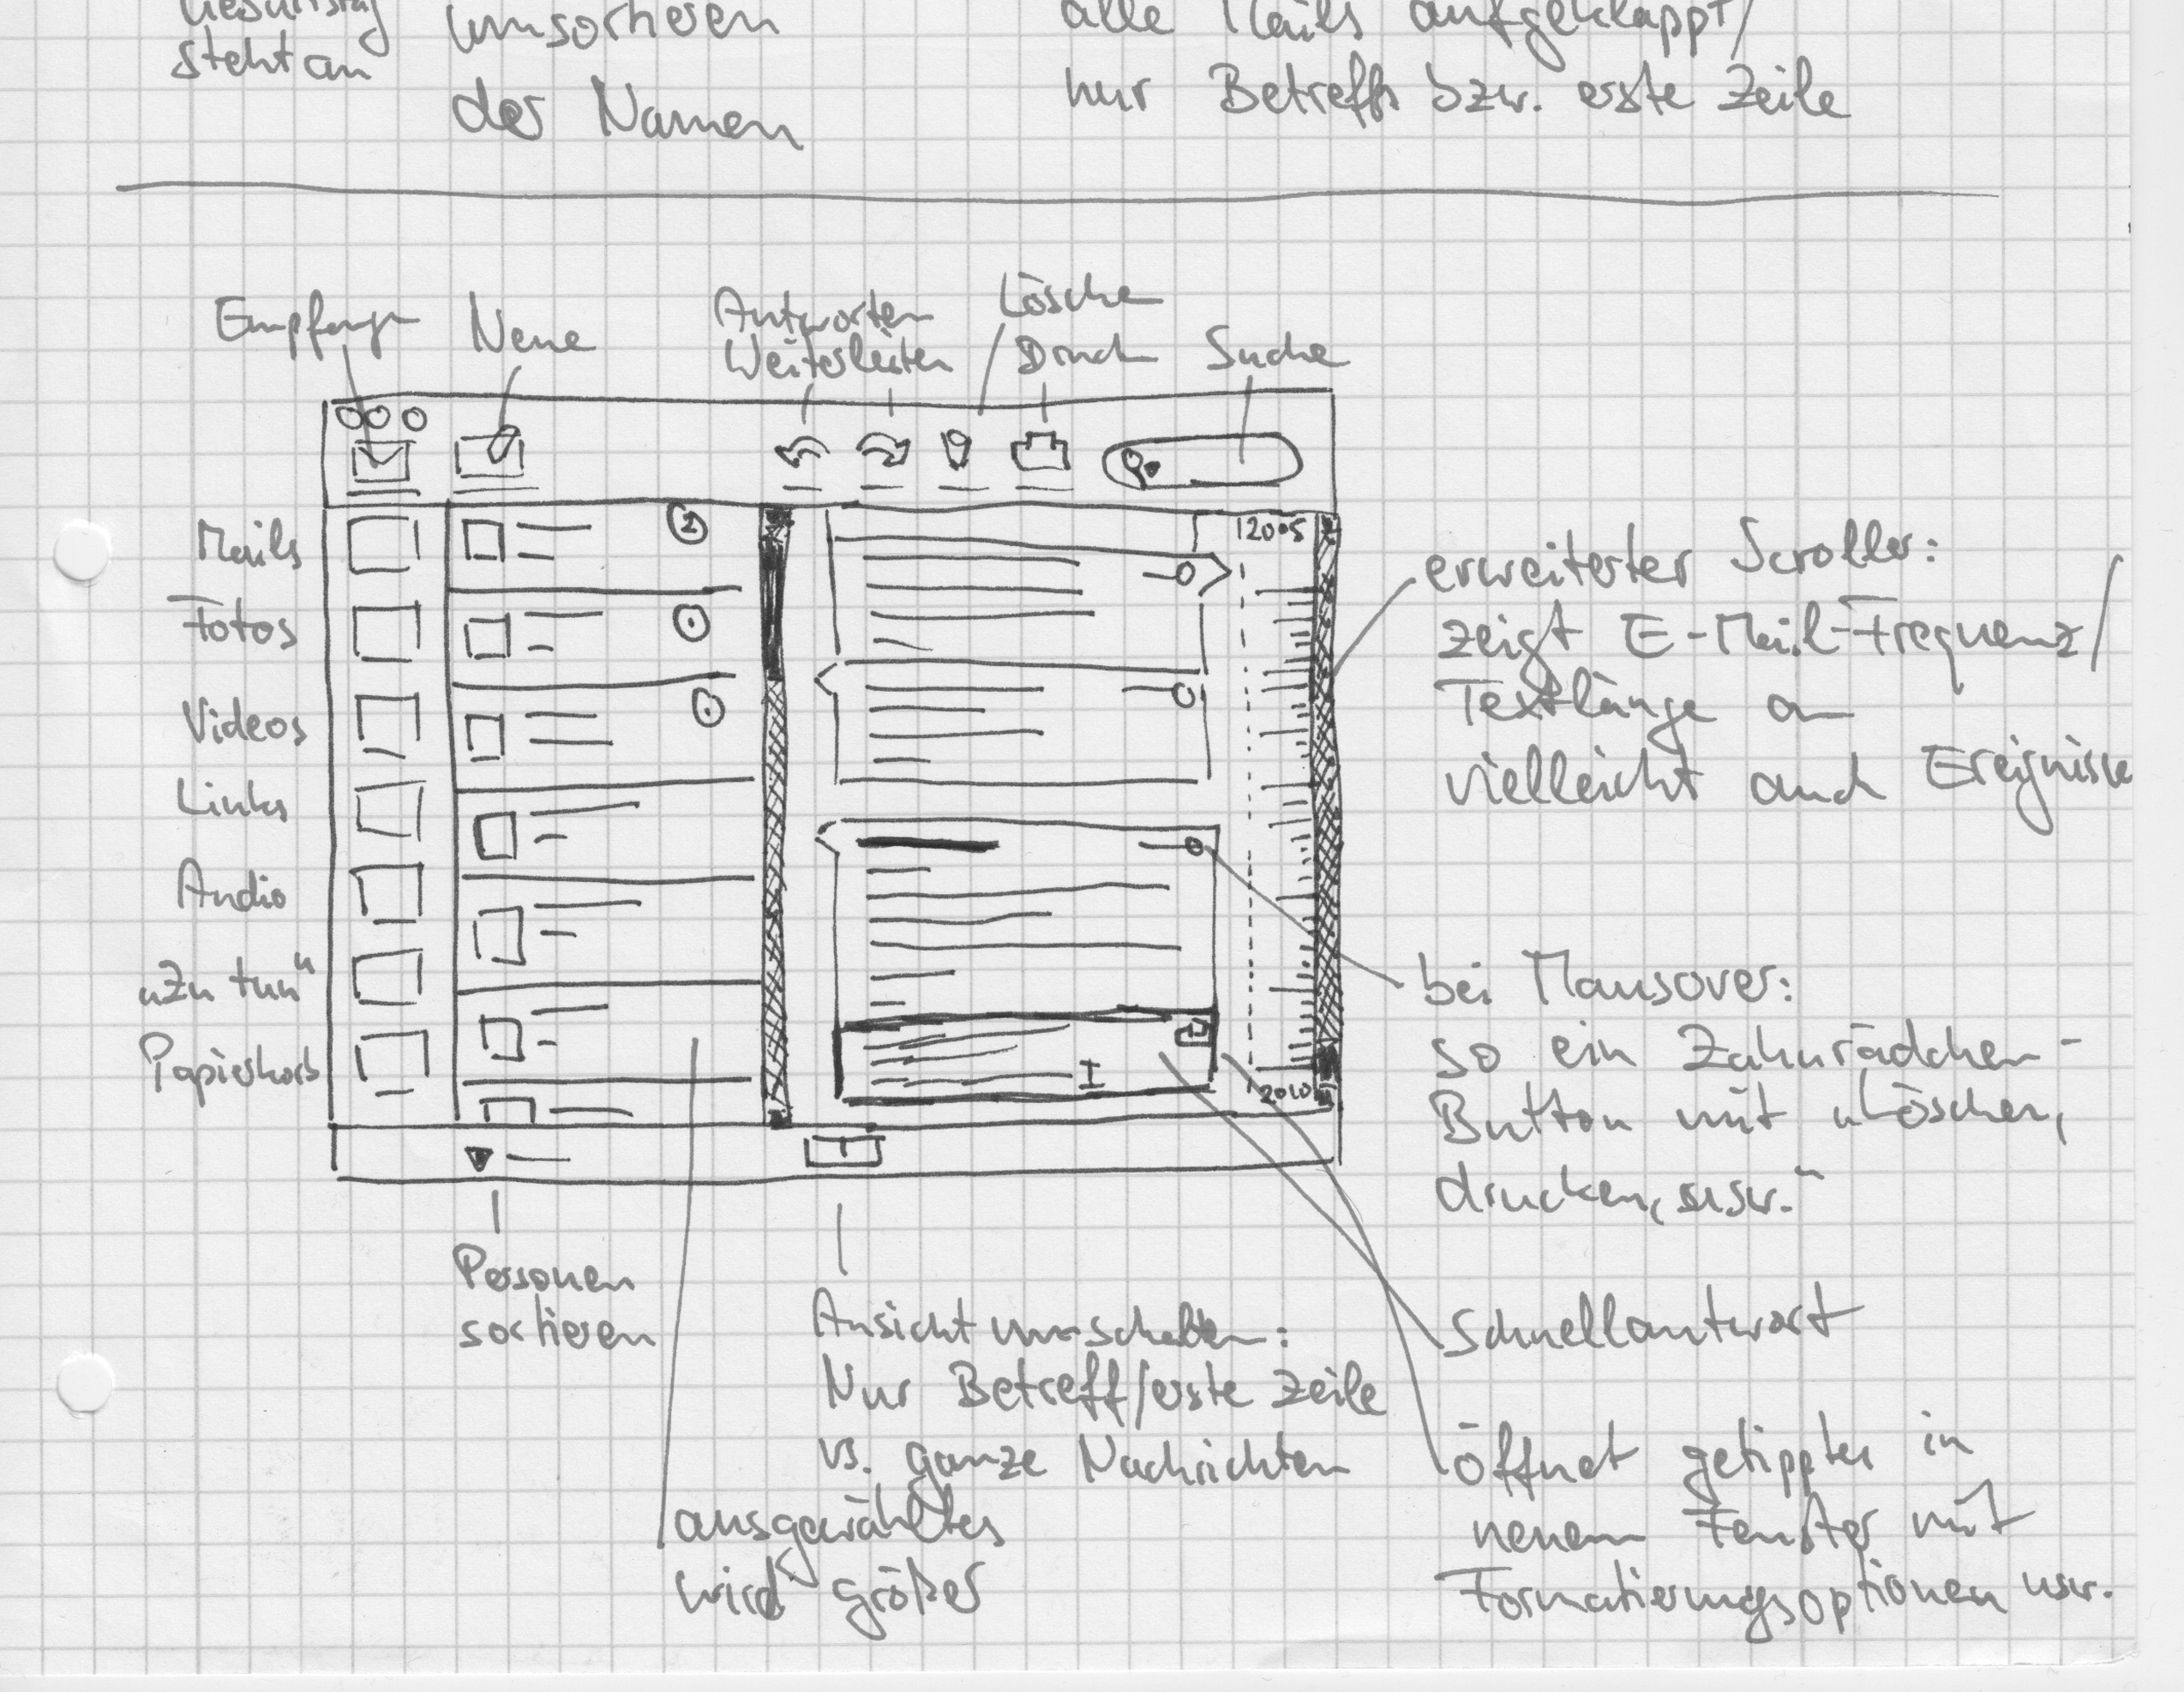 Geburtstag
steht an
umsortieren
der Namen
alle Mails aufgeklappt/
nur Betreffs bzw. erste Zeile
Empfange
Neue
Antworten
Weiterleiten
Lösche
Druck
Suche
Mails
Fotos
Videos
Links
Audio
„Zu tun“
Papierkorb
2
2005
2010
erweiterter Scroller:
zeigt E-Mail-Frequenz/
Textlänge an
vielleicht auch Ereignisse
bei Mausover:
so ein Zahnrädchen-
Button mit „Löschen,
drucken, usw.“
Schnellantwort
öffnet getipptes in
neuem Fenster mit
Formatierungsoptionen usw.
Personen
sortieren
Ansicht umschalten:
Nur Betreff/erste Zeile
vs. ganze Nachrichten
ausgewähltes
wird größer